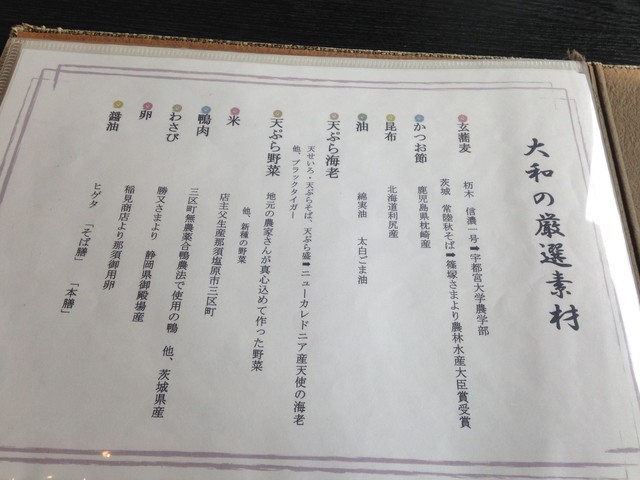 大和の厳選素材
玄蕎麦
栃木 信濃一号➡宇都宮大学農学部
茨城 常陸秋そば➡篠塚さまより農林水産大臣賞受賞
かつお節
鹿児島県枕崎産
昆布
北海道利尻産
油
綿実油 太白ごま油
天ぷら海老
天せいろ・天ぷらそば、天ぷら盛➡ニューカレドニア産天使の海老
他、ブラックタイガー
天ぷら野菜
地元の農家さんが真心込めて作った野菜
他、新種の野菜
米
店主父生産那須塩原市三区町
鴨肉
三区町無農薬合鴨農法で使用の鴨 他、茨城県産
わさび
勝又さまより 静岡県御殿場産
卵
稲見商店より那須御用卵
醤油
ヒゲタ 「そば膳」 「本膳」